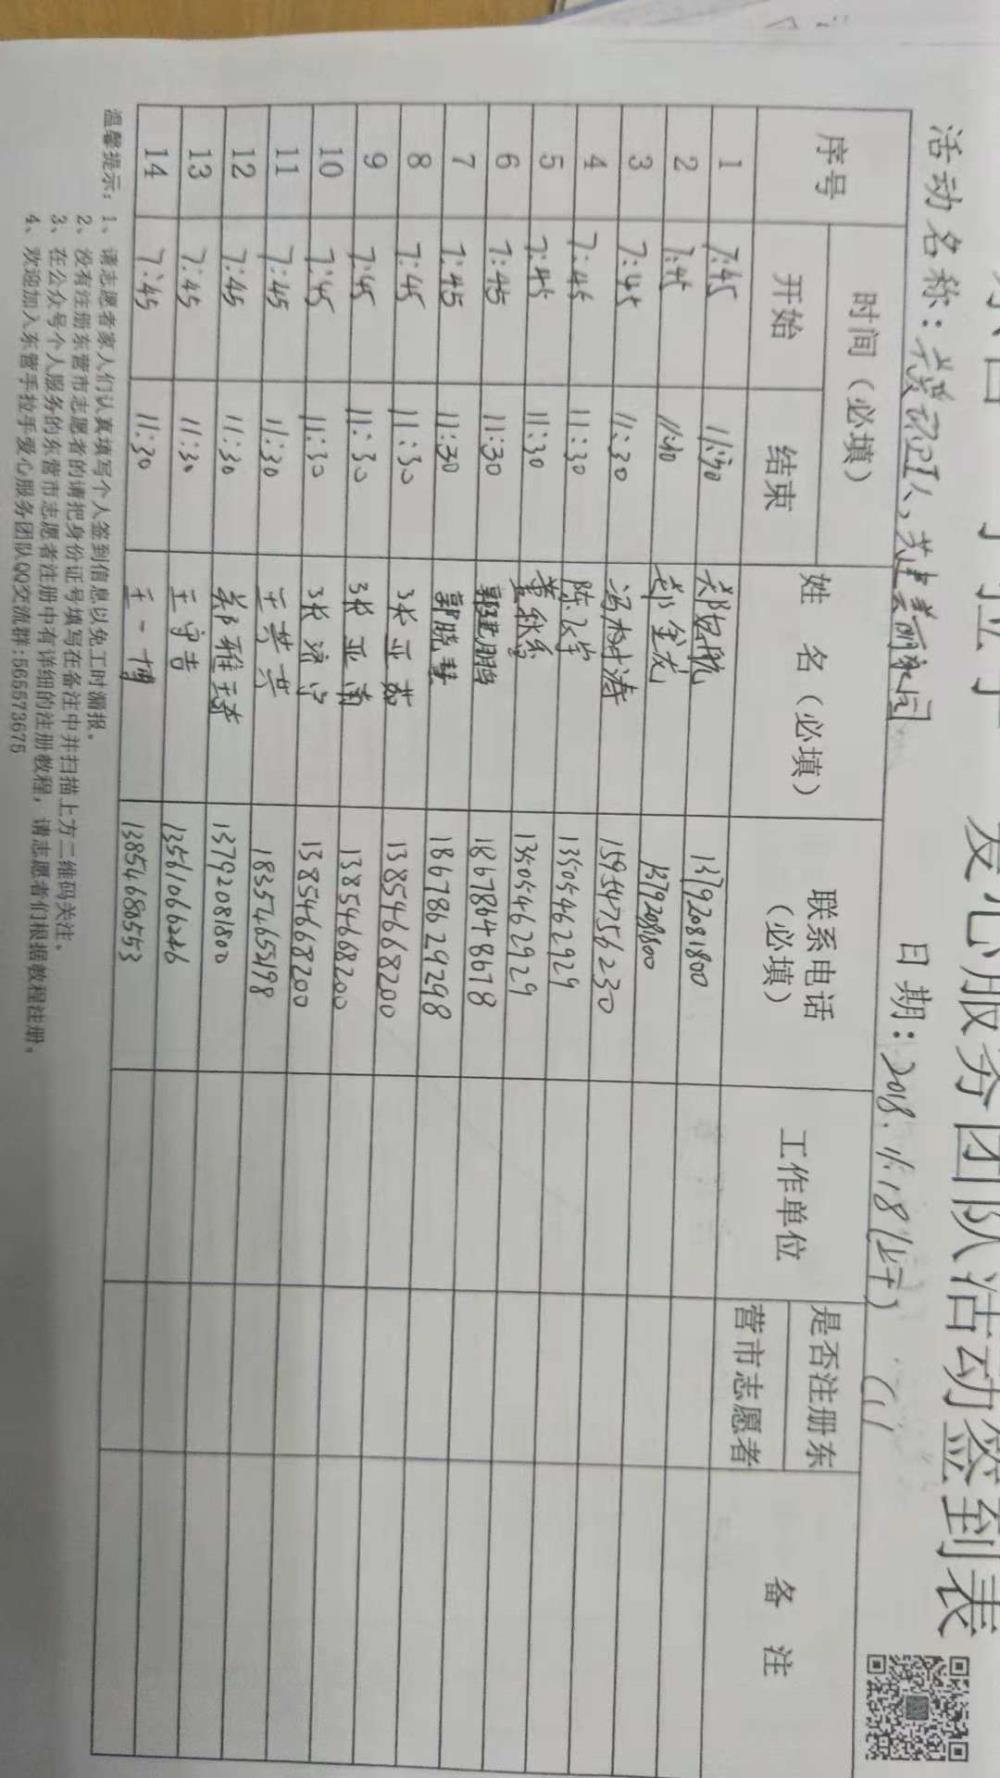 手拉手爱心服务团队活动签到表
活动名称：关爱环卫工人，共建美丽家园 日期：2018.11.18（上午）（1）
序号 时间（必填） 姓 名（必填） 联系电话（必填） 工作单位 是否注册东营市志愿者 备 注
开始 结束
1 7:45 11:30 13792081800
2 7:45 11:30 郑金龙 13792081800
3 7:45 11:30 冯树涛 15954756230
4 7:45 11:30 13505462929
5 7:45 11:30 13505462929
6 7:45 11:30 郭建鹏 18678648678
7 7:45 11:30 郭晓慧 18678629298
8 7:45 11:30 张亚茹 13854668200
9 7:45 11:30 张亚南 13854668200
10 7:45 11:30 13854668200
11 7:45 11:30 王英英 18354665198
12 7:45 11:30 郑雅琪 13792081800
13 7:45 11:30 王守吉 13561066246
14 7:45 11:30 王一博 13854680553
温馨提示：1、请志愿者家人们认真填写个人签到信息以免工时漏报。
2、没有注册东营市志愿者的请把身份证号填写在备注中并扫描上方二维码关注。
3、在公众号个人服务的东营市志愿者注册中有详细的注册教程，请志愿者们根据教程注册。
4、欢迎加入东营手拉手爱心服务团队QQ交流群:565573675